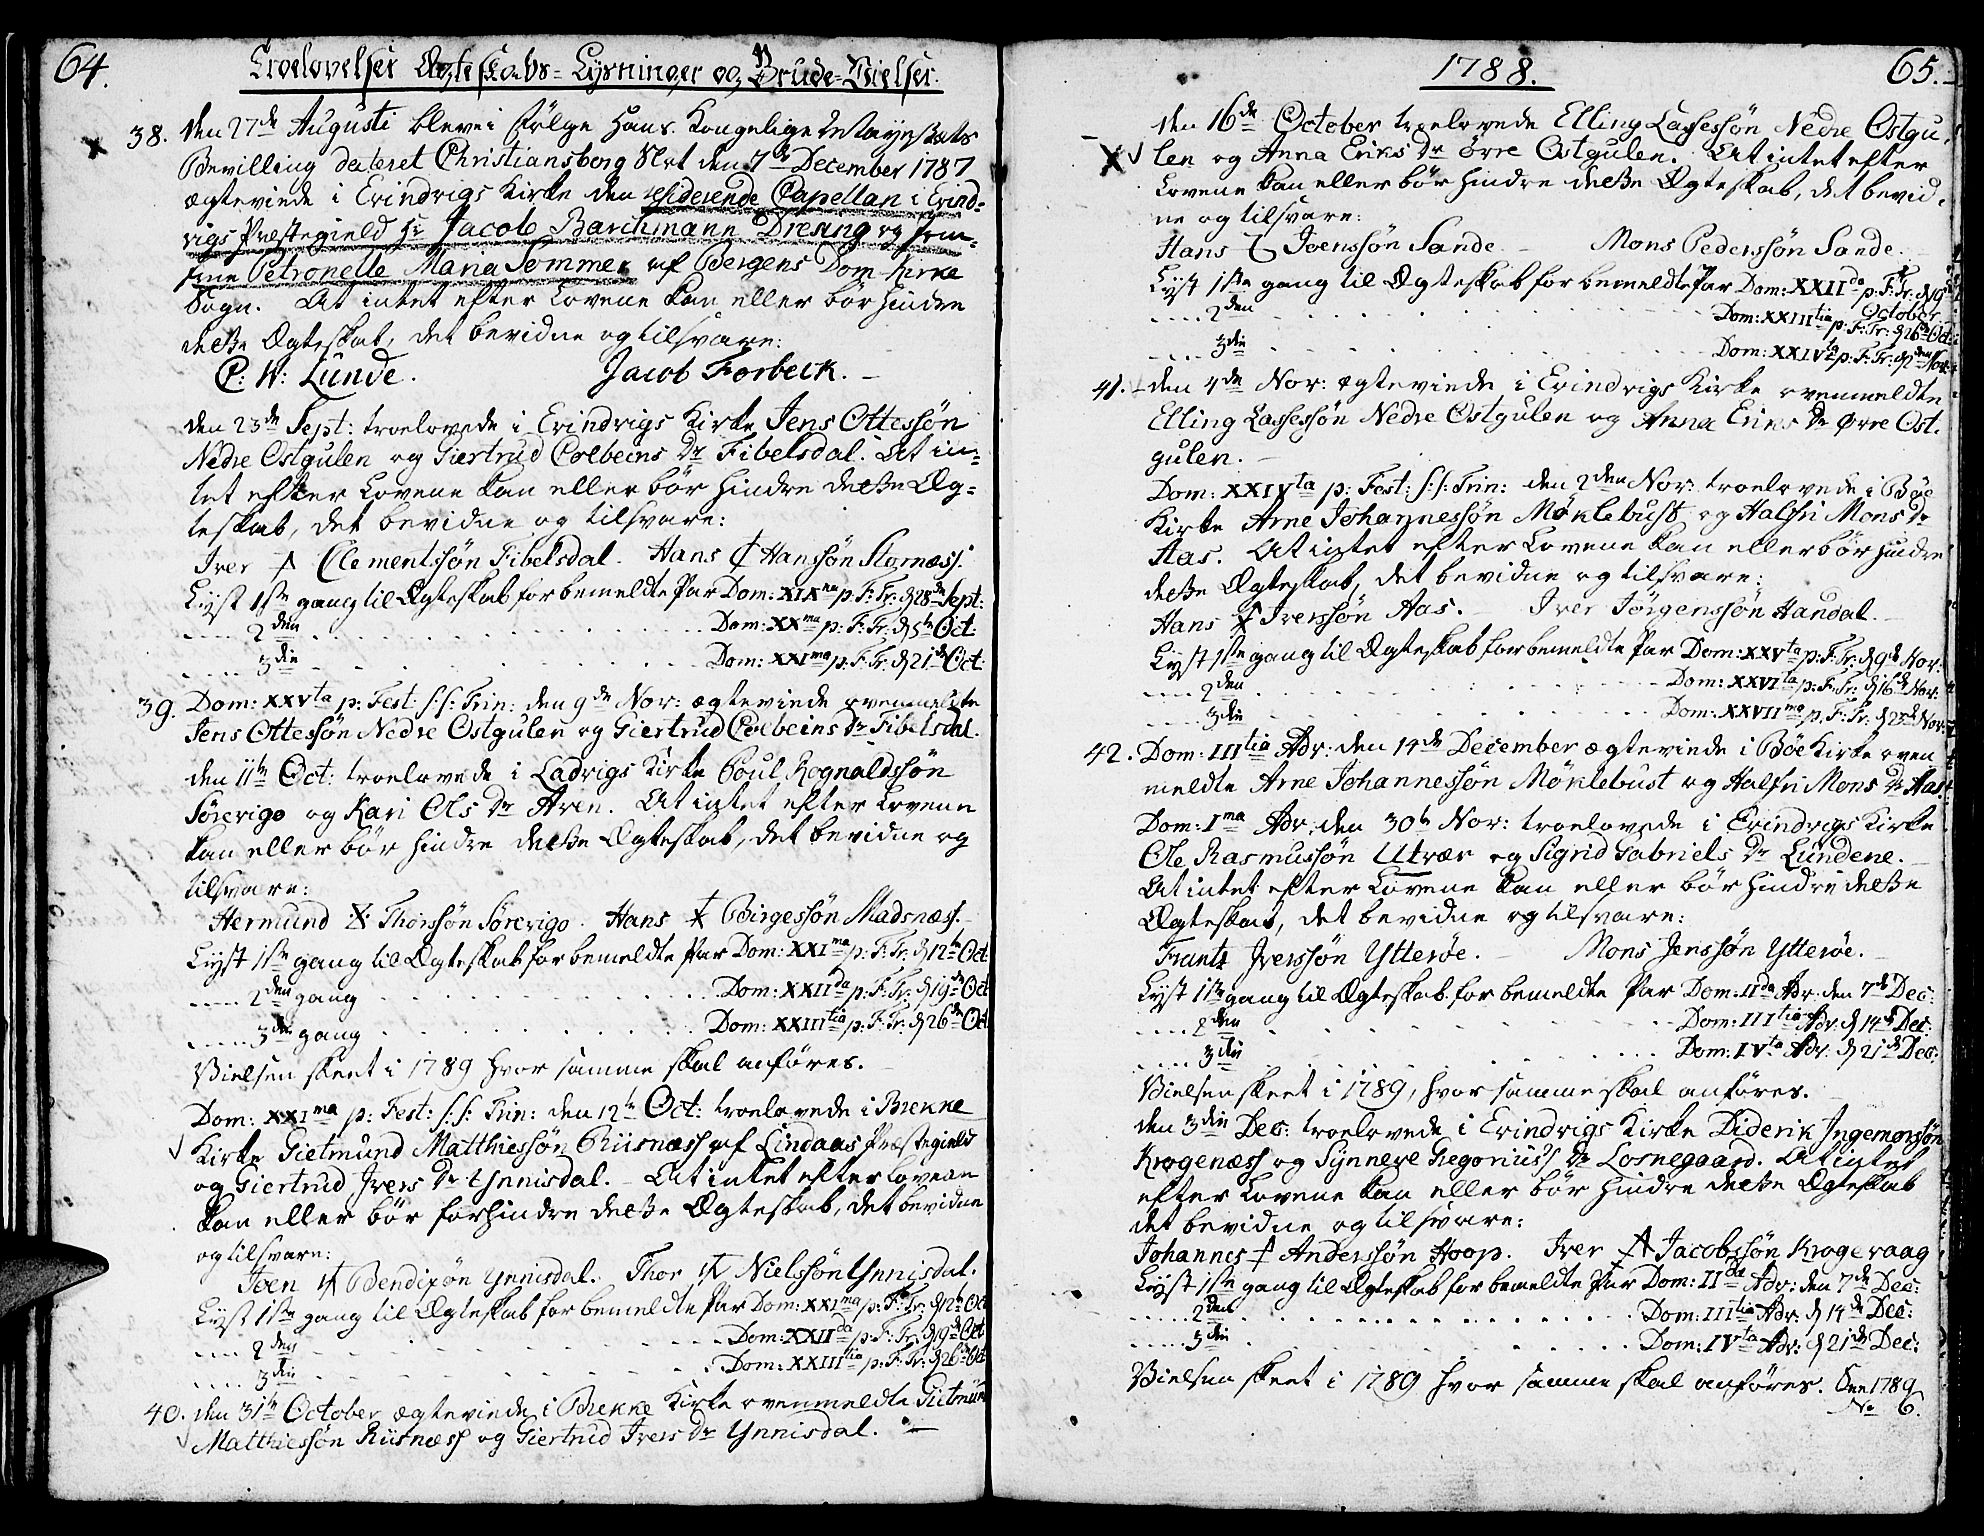 64.
Troelovelser Ægteskabs-Lysninger og Brude-Vielser.
38. den 27de Augusti bleve i følge Hans Kongelige Mayestæts
Bevilling dateret Christiansborg Slot den 7de December 1787
ægteviede i Evindvigs Kirke den residerende Capellan i Evind-
vigs Præstegield Hr Jacob Barchmann Dresing og Jom-
frue Petronelle Maria Sommer af Bergens Dom-Kirke
Sogn. At intet efter Lovene kan eller bør hindre
dette Ægteskab, det bevidne og tilsvare:
P: W: Lunde. Jacob Forbeck.
den 23de Sept: troelovede i Evindvigs Kirke Jens Ottessøn
Nedre Ostgulen og Giertrud Colbeins Dr Fibelsdal. At in-
tet efter Lovene kan eller bør hindre dette Æg-
teskab, det bevidne og tilsvare:
Iver Clementssøn Fibelsdal. Hans Hanssøn Stornæss.
Lyst 1ste gang til Ægteskab for bemeldte Par Dom: XIXna p: F: Tr: d 28de Sept:
2den Dom: XXma p: F: Tr: d 5te Oct:
3die Dom: XXIma p: F: Tr: d 21de Oct:
39. Dom: XXVta p: Fest: S: S: Trin: den 9de Nov: ægteviede ovenmeldte
Jens Ottessøn Nedre Ostgulen og Giertrud Colbeins Dr Fibelsdal.
den 11te Oct: troelovede i Ladvigs Kirke Poul Rognaldssøn
Sørevigo og Kari Ols Dr Aren. At intet efter Lovene
kan eller bør hindre dette Ægteskab, det bevidne og
tilsvare:
Hermund Thorssøn Sørevigo. Hans Birgessøn Madsnæss.
Lyst 1ste gang til Ægteskab for bemeldte Par Dom: XXIma p: F: Tr: d 12te Oct
2den gang Dom: XXIIda p: F: Tr: d 19de Oct
3die gang Dom: XXIIItia p: F: Tr: d 26de Oct
Vielsen skeet i 1789 hvor samme skal anføres.
Dom: XXIma p: Fest: S: S: Trin: den 12te Oct: troelovede i Brekke
Kirke Gietmund Matthiessøn Riisnæss af Lindaas Præstegield
og Giertrud Ivers Dr Ynnisdal. At intet efter Lovene
kan eller bør forhindre dette Ægteskab, det bevidne
og tilsvare:
Joen Bendixøn Ynnisdal. Thor Nielssøn Ynnisdal.
Lyst 1ste gang til Ægteskab for bemeldte Par Dom: XXIma p: F: Tr: d 12te Oct
2den Dom: XXIIda p: F: Tr: d 19de Oct
3die Dom: XXIIItia p: F: Tr: d 26de Oct
40. den 31te October ægteviede i Brekke Kirke ovenmeldte Gietmun
Matthiessøn Riisnæss og Giertrud Ivers Dr Ynnisdal.
1788.
65.
den 16de October troelovede Elling Lassessøn Nedre Ostgu-
len og Anna Eriks Dr Øvre Ostgulen. At intet efter
Lovene kan eller bør hindre dette Ægteskab, det bevid-
ne og tilsvare:
Hans Joenssøn Sande. Mons Pederssøn Sande.
Lyst 1ste gang til Ægteskab for bemeldte Par Dom: XXIIda p: F: Tr: d 19de
October
2den Dom: XXIIItia p: F: Tr: d 26de Oct:
3die Dom: XXIVta p: F: Tr: d 2den Nov:
41. den 4de Nov: ægteviede i Evindvigs Kirke ovenmeldte
Elling Lassessøn Nedre Ostgulen og Anna Eriks Dr Øvre Ost-
gulen.
Dom: XXIVta p: Fest: S: S: Trin: den 2den Nov: troelovede i Bøe
Kirke Arne Johannessøn Møklebust og Halfri Mons Dr
Aas. At intet efter Lovene kan eller bør hindre
dette Ægteskab, det bevidne og tilsvare:
Hans Iverssøn Aas. Iver Jørgenssøn Handal.
Lyst 1ste gang til Ægteskab for bemeldte Par Dom: XXVta p: F: Tr: d 9de Nov:
2den Dom: XXVIta p: F: Tr: d 16de Nov:
3die Dom: XXVIIma p: F: Tr: d 23de Nov:
42. Dom: IIItia Adv: den 14de December ægteviede i Bøe Kirke oven
meldte Arne Johannessøn Møklebust og Halfri Mons Dr Aas.
Dom: Ima Adv: den 30te Nov: troelovede i Evindvigs Kirke
Ole Rasmussøn Utvær og Sigrid Gabriels Dr Lundene.
At intet efter Lovene kan eller bør hindre dette
Ægteskab, det bevidne og tilsvare:
Frants Iverssøn Ytterøe. Mons Jenssøn Ytterøe.
Lyst 1ste gang til Ægteskab for bemeldte Par Dom: IIda Adv: den 7de Dec:
2den Dom: IIItia Adv: d 14de Dec:
3die Dom: IVta Adv: d 21de Dec:
Vielsen skeet i 1789, hvor samme skal anføres.
den 3die Dec: troelovede i Evindvigs Kirke Diderik Ingemorssøn
Krogenæss og Synneve Gregorius's Dr Losnegaard. At intet
efter Lovene kan eller bør hindre dette Ægteskab
det bevidne og tilsvare:
Johannes Anderssøn Hoop. Iver Jacobssøn Krogevaag
Lyst 1ste gang til Ægteskab for bemeldte Par Dom: IIda Adv: den 7de Dec:
2den Dom: IIItia Adv: d 14de Dec:
3die Dom: IVta Adv: d 21de Dec:
Vielsen skeet i 1789 hvor samme skal anføres. See 1789
No 6.